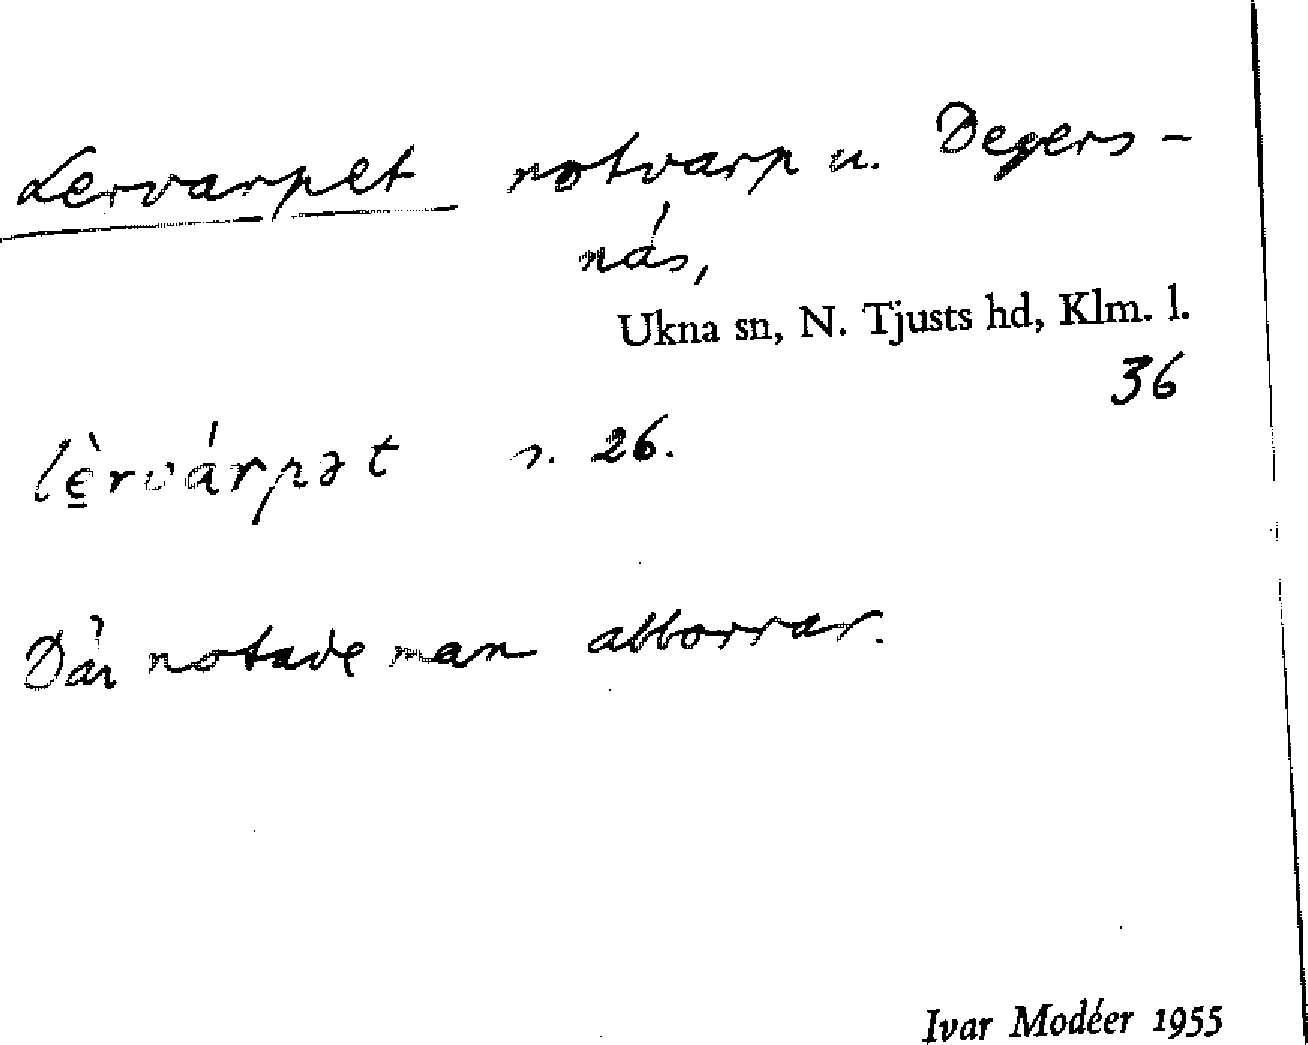 Lervarpet notvarp u. Degers-
näs,
Ukna sn, N. Tjusts hd, Klm. l.
36
lè̱rvárpət s. 26.
Där notade man abborrar.
Ivar Modéer 1955